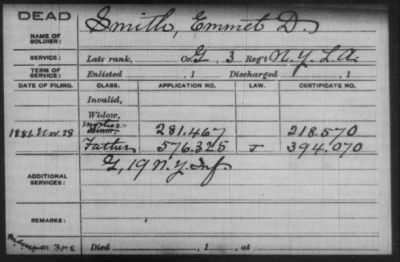 DEAD
NAME OF SOLDIER: Smith, Emmet D.
SERVICE: Late rank, Co. G, 3 Reg't N.Y.L.A.
TERM OF SERVICE: Enlisted , 1 Discharged , 1
DATE OF FILING. CLASS. APPLICATION NO. LAW. CERTIFICATE NO.
Invalid,
Widow,
1881 Nov. 28 Mother Minor, 281.467 218.570
Father 576.325 J 394.070
ADDITIONAL SERVICES: G, 19 N.Y. Inf
REMARKS:
Died , 1 , at